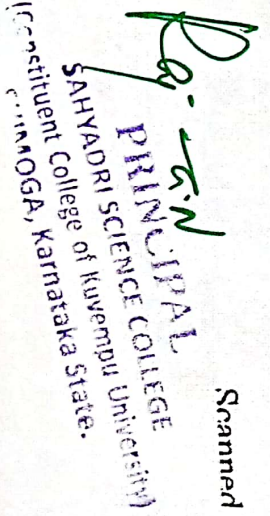 Scanned
PRINCIPAL
SAHYADRI SCIENCE COLLEGE
Constituent College of Kuvempu University)
MOGA, Karnataka State.